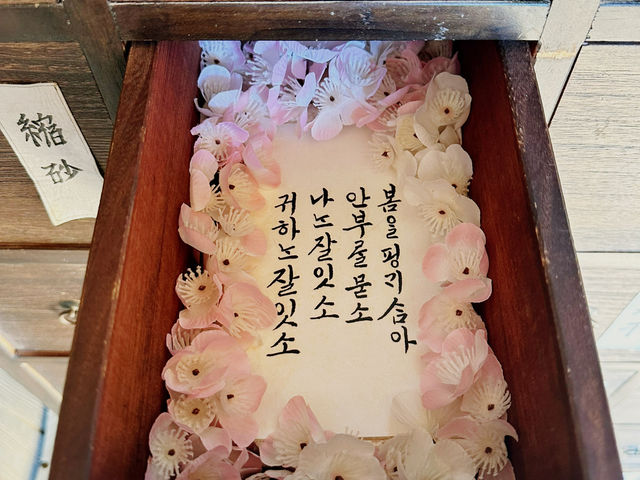 縮砂
봄을핑긔삼아
안부를묻소
나는잘잇소
귀하는잘잇소